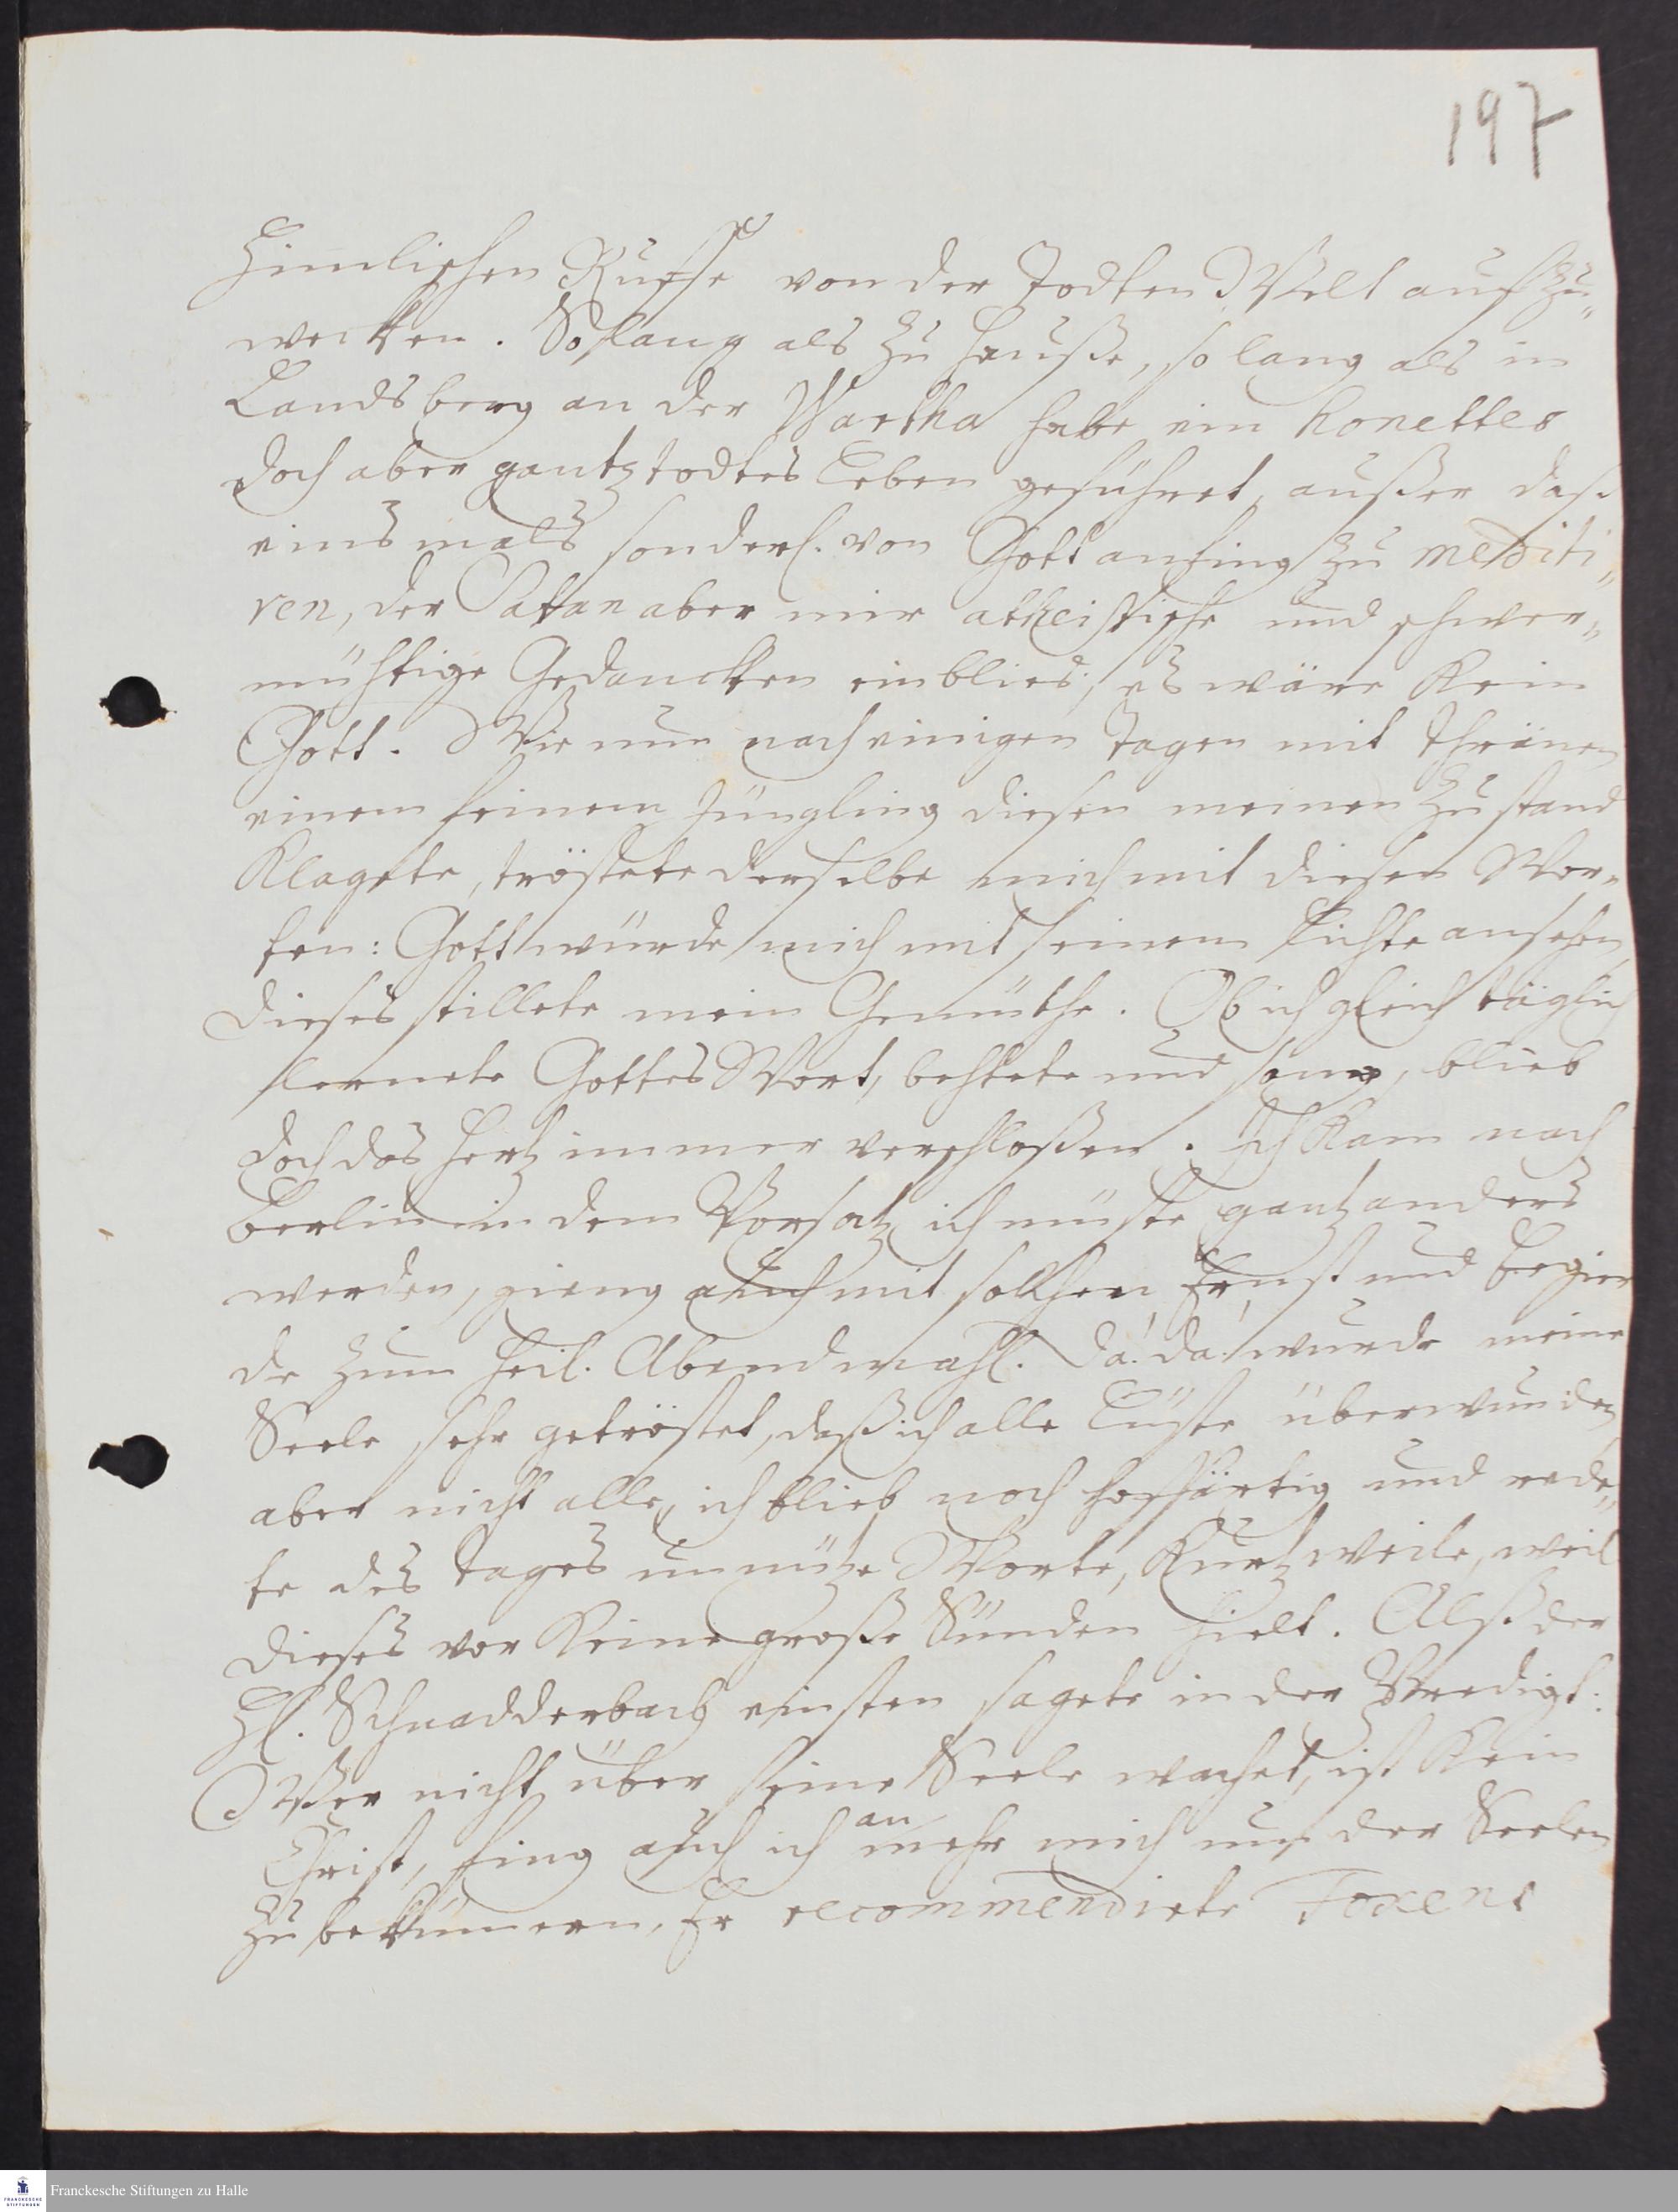 197
Himlischen Ruffe von der Todten Welt aufzu¬
wecken. So lang als zu Hauße, so lang als in
Landsberg an der Wartha habe ein honettes
doch aber gantz todtes Leben geführet, außer daß
einsmals sonderl. von Gott anfing zu mediti¬
ren, der Satan aber mir atheistische und schwer¬
mühtige Gedancken einblies, es wäre kein
Gott. Wie nun nach einigen Tagen mit Thränen
einem feinem Jüngling diesen meinen Zustand
klagete, tröstete derselbe mich mit diesen Wor¬
ten: Gott würde mich mit seinem Lichte ansehen,
dieses stillete mein Gemüthe. Ob ich gleich täglich
lernete Gottes Wort, behtete und sang, blieb
doch das Hertz immer verschloßen. Ich kam nach
Berlin in dem Vorsatz ich müste gantz anders
werden, gieng auch mit solchem Ernst und Begier
de zum Heil. Abendmahl. da! da! wurde meine
Seele sehr getröstet, daß ich alle Lüste überwunden,
aber nicht alle, ich blieb noch hoffärtig und rede¬
te des Tages unnütze Worte, Kurtzweile, weil
dieses vor keine große Sünden hielt. Alß der
H. Schnadderbach einsten sagete in der Predigt:
Wer nicht über seine Seele wachet, ist kein
Christ, fing auch ich an mehr mich um der Seelen
zu bekümmern, Er recommendirte Foxens
Franckesche Stiftungen zu Halle